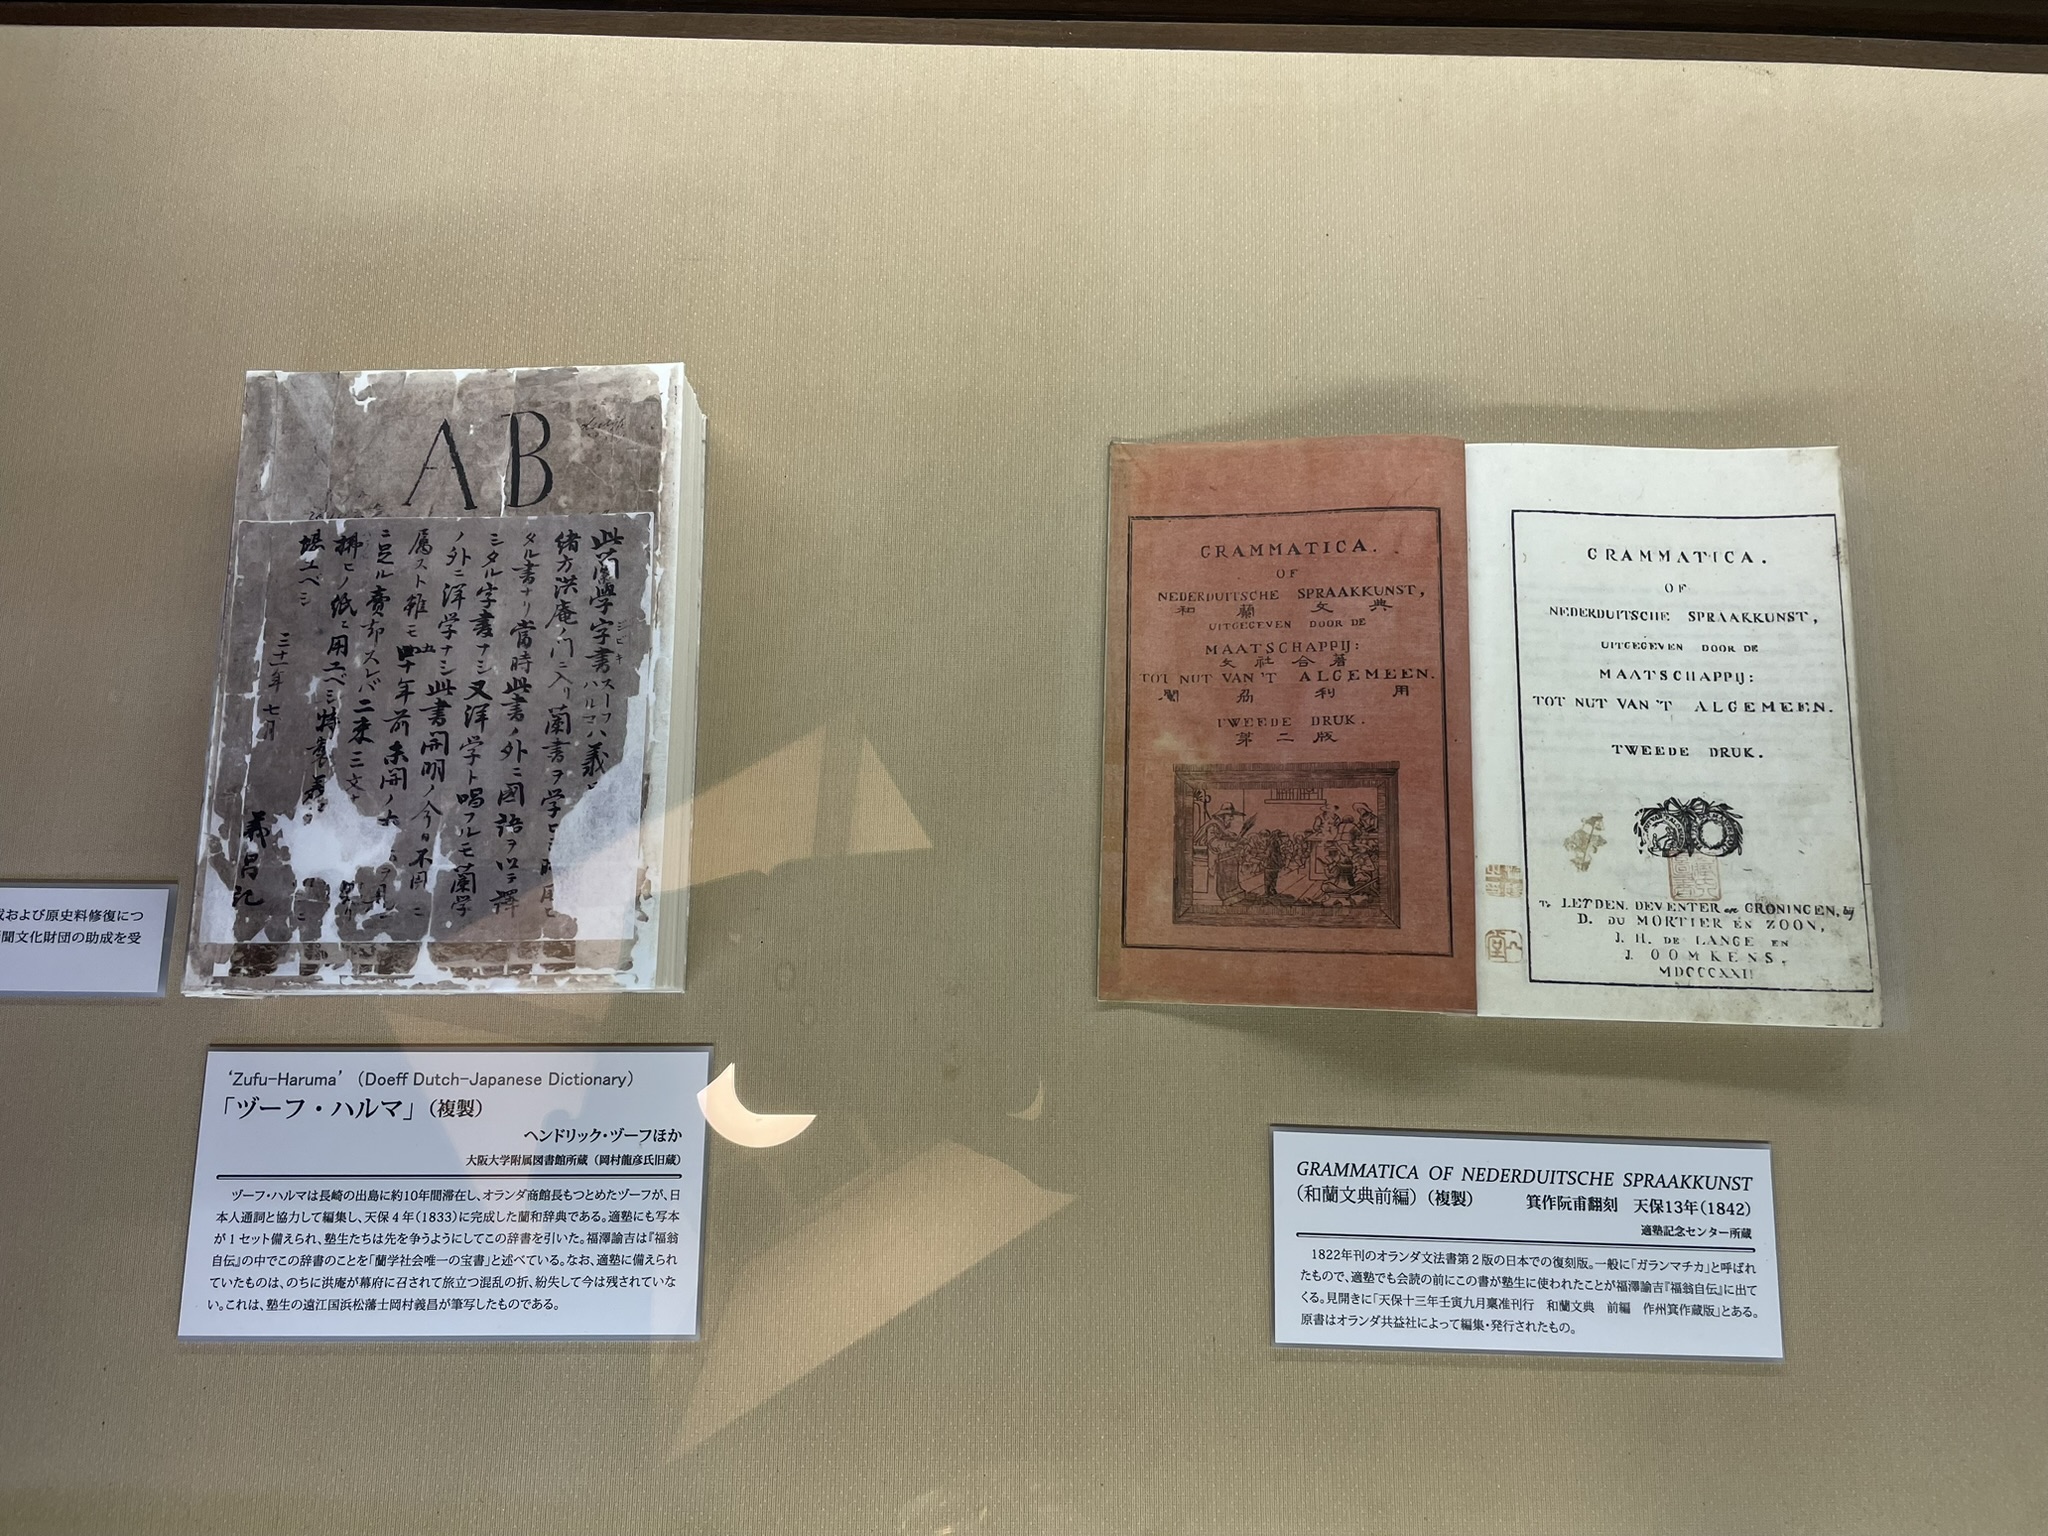 成および原史料修復につ
聞文化財団の助成を受
AB
此蘭學字書ハルマハ義
緒方洪庵ノ門ニ入リ蘭書ヲ学
タル書ナリ當時此書ノ外ニ國語ヲ以テ譯
シタル字書ナシ又洋学ト唱フルモ蘭学
ノ外ニ洋学ナシ此書開明ノ今日不用ニ
属スト雖モ四十年前未開ノ
三十一年七月
義昌記
‘Zufu-Haruma’ (Doeff Dutch-Japanese Dictionary)
「ヅーフ・ハルマ」(複製)
ヘンドリック・ヅーフほか
大阪大学附属図書館所蔵(岡村龍彦氏旧蔵)
ヅーフ・ハルマは長崎の出島に約10年間滞在し、オランダ商館長もつとめたヅーフが、日
本人通詞と協力して編集し、天保4年(1833)に完成した蘭和辞典である。適塾にも写本
が1セット備えられ、塾生たちは先を争うようにしてこの辞書を引いた。福澤諭吉は『福翁
自伝』の中でこの辞書のことを「蘭学社会唯一の宝書」と述べている。なお、適塾に備えられ
ていたものは、のちに洪庵が幕府に召されて旅立つ混乱の折、紛失して今は残されていな
い。これは、塾生の遠江国浜松藩士岡村義昌が筆写したものである。
GRAMMATICA.
OF
NEDERDUITSCHE SPRAAKKUNST,
和蘭文典
UITGEGEVEN DOOR DE
MAATSCHAPPIJ:
文社合著
TOT NUT VAN'T ALGEMEEN.
利用
TWEEDE DRUK.
第二版
GRAMMATICA.
OF
NEDERDUITSCHE SPRAAKKUNST,
UITGEGEVEN DOOR DE
MAATSCHAPPIJ:
TOT NUT VAN'T ALGEMEEN.
TWEEDE DRUK.
Te LEYDEN, DEVENTER en GRONINGEN, bij
D. DU MORTIER EN ZOON,
J. H. DE LANGE EN
J. OOMKENS,
MDCCCXXII
GRAMMATICA OF NEDERDUITSCHE SPRAAKKUNST
(和蘭文典前編)(複製) 箕作阮甫翻刻 天保13年(1842)
適塾記念センター所蔵
1822年刊のオランダ文法書第2版の日本での復刻版。一般に「ガランマチカ」と呼ばれ
たもので、適塾でも会読の前にこの書が塾生に使われたことが福澤諭吉『福翁自伝』に出て
くる。見開きに「天保十三年壬寅九月稟准刊行 和蘭文典 前編 作州箕作蔵版」とある。
原書はオランダ共益社によって編集・発行されたもの。